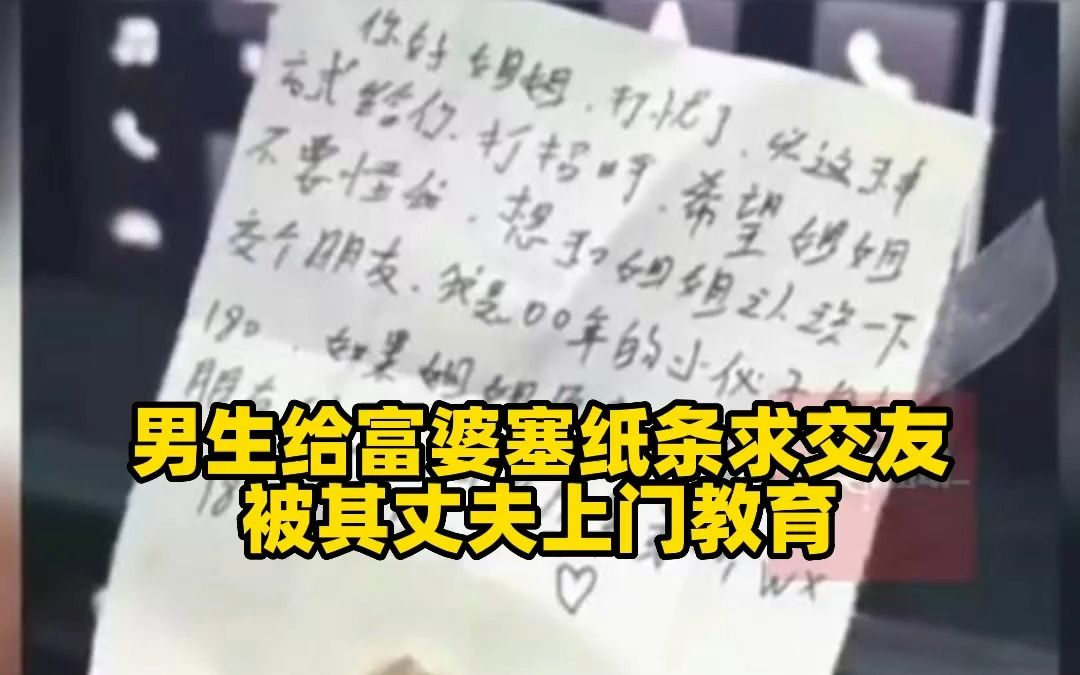 你好姐姐，打扰了，以这种
方式给你打招呼，希望姐姐
不要怪我，想和姐姐认识一下
交个朋友，我是00年的小伙子
180，如果姐姐
朋友
男生给富婆塞纸条求交友
被其丈夫上门教育
18
wx